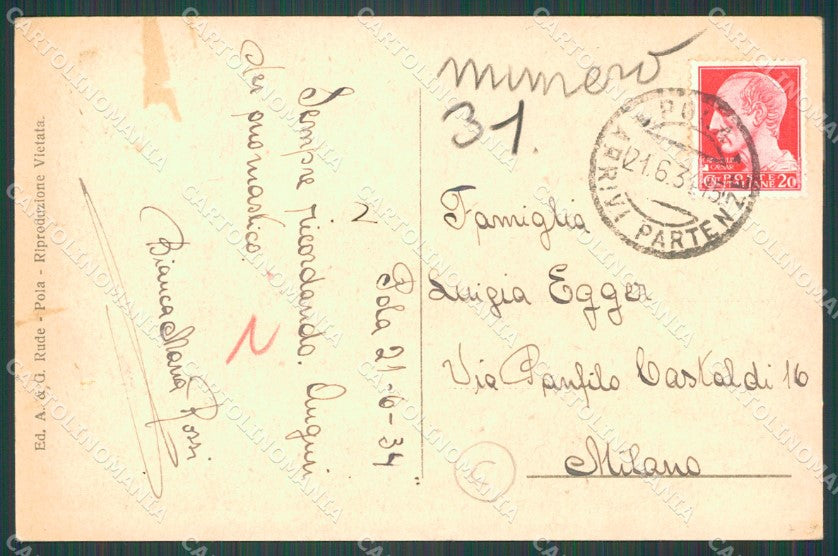 Pola 21-6-34
Sempre ricordando. Auguri
pel onomastico.
Bianca Maria Rossi
numero
31.
Famiglia
Luigia Egger
Via Panfilo Castaldi 16
Milano
POLA
21.6.3
ARRIVI PARTENZE
20
Ed. A. & G. Rude - Pola - Riproduzione Vietata.
CARTOLINOMANIA